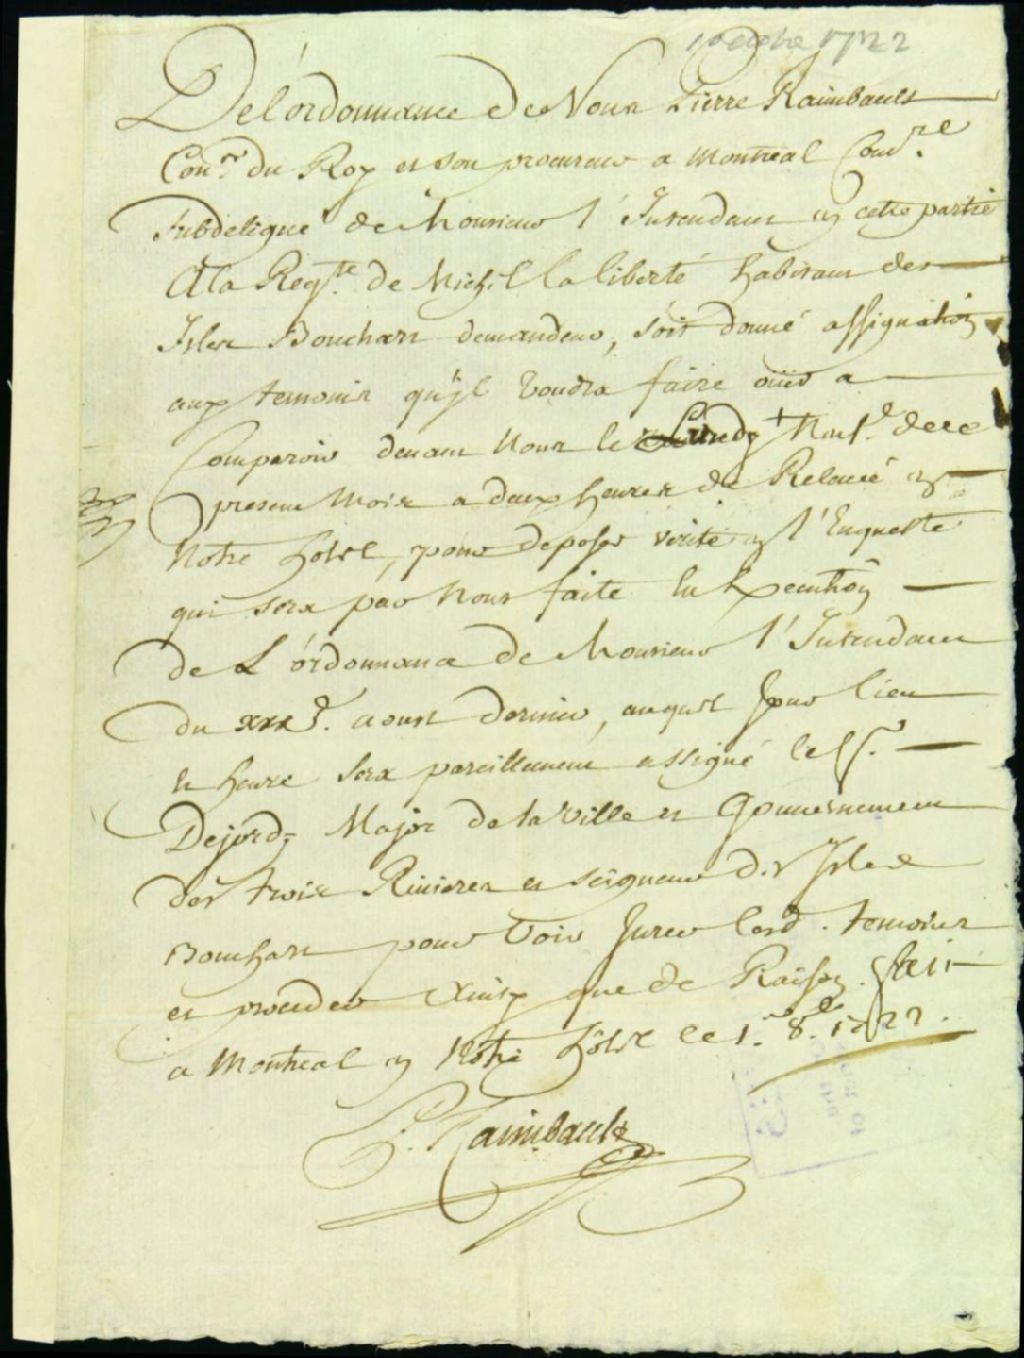 1er octobre 1722
De l'ordonnance de Nous Pierre Raimbault
Con.er du Roy et son procureur a Montreal
Subdelegué de Monsieur l'Intendant en cette partie
A la Req.te de Mich.l la liberté habitant des
Isles Bouchart demandeur, soit donné assignation
aux temoins qu'jl voudra faire ouir a
Comparoir devant Nous le Lundy + Neuf.e de ce
present mois a deux heures de Relevé en
Notre hôtel, pour deposer verité en l'Enqueste
qui sera par Nous faite En Execution
de L'ordonnance de Monsieur l'Intendant
du aoust dernier, auquel jour lieu
et heure sera pareillement assigné le Sr.
Dejordy Major de la ville et Gouvernement
des trois Rivieres et seigneur des Isles
Bouchart pour Voir Jurer lesd. temoins
et proceder Ainsy que de Raison. fait
a Montreal en Notre hôtel le 1.er 8.e 1722.
P. Raimbault